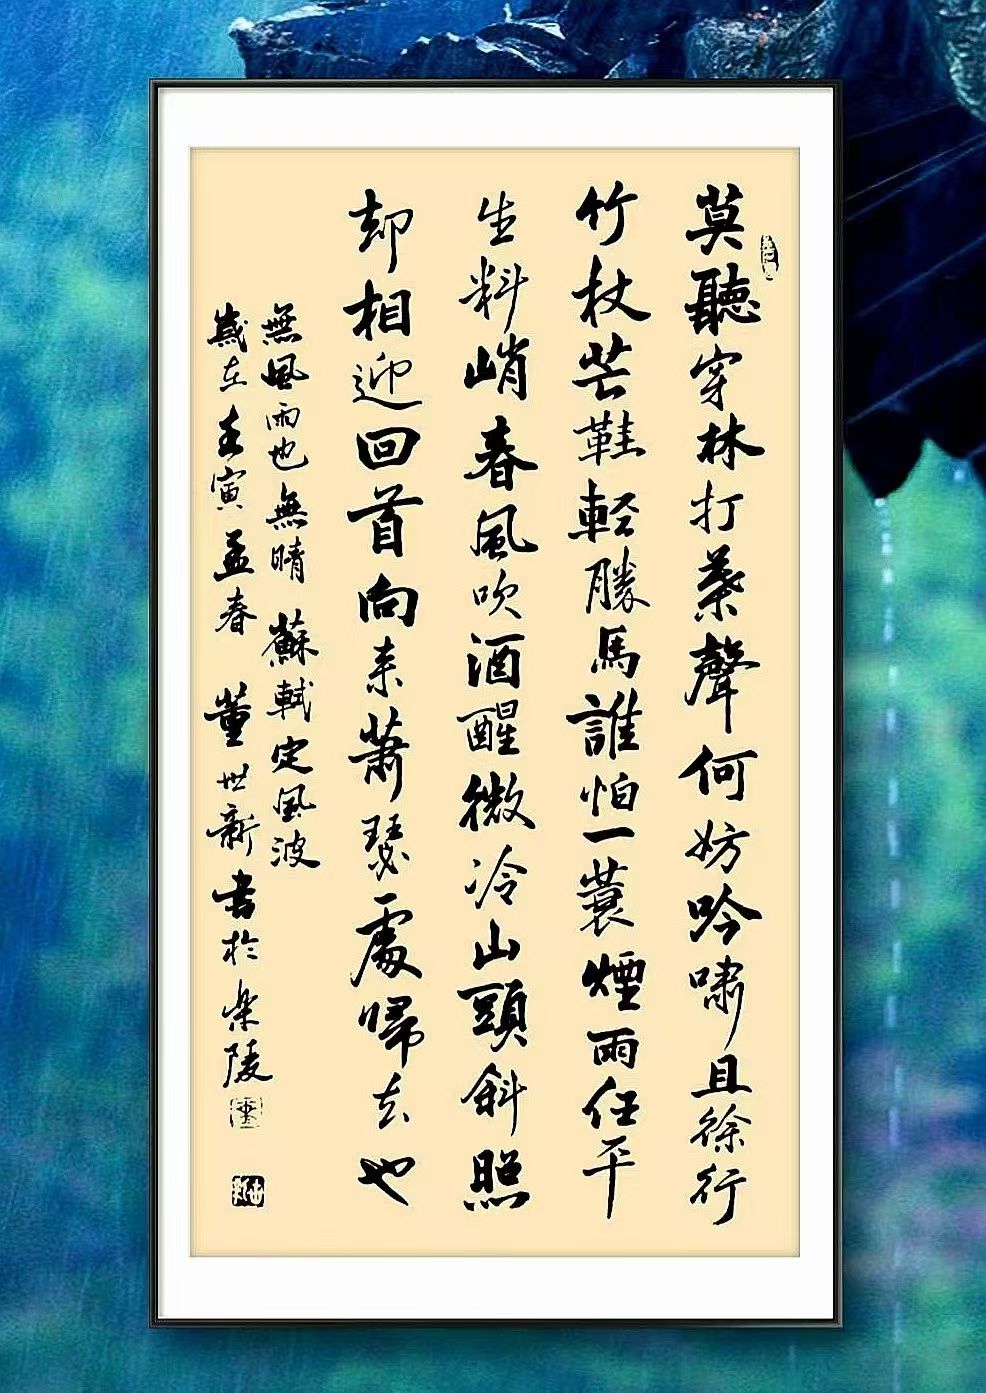 莫聽穿林打葉聲何妨吟嘯且徐行
竹杖芒鞋輕勝馬誰怕一蓑煙雨任平
生料峭春風吹酒醒微冷山頭斜照
却相迎回首向来蕭瑟處歸去也
無風雨也無晴 蘇軾定風波
歲在壬寅孟春 董世新書於樂陵